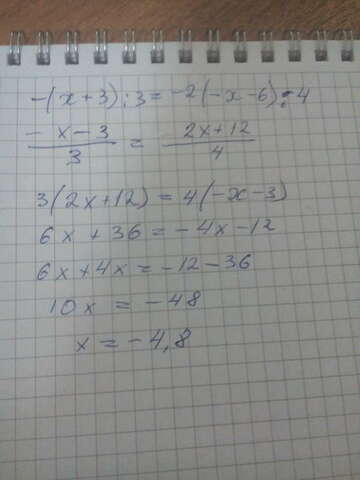 -(x+3):3=-2(-x-6):4
-x-3/3 = 2x+12/4
3(2x+12)=4(-x-3)
6x+36=-4x-12
6x+4x=-12-36
10x=-48
x=-4,8